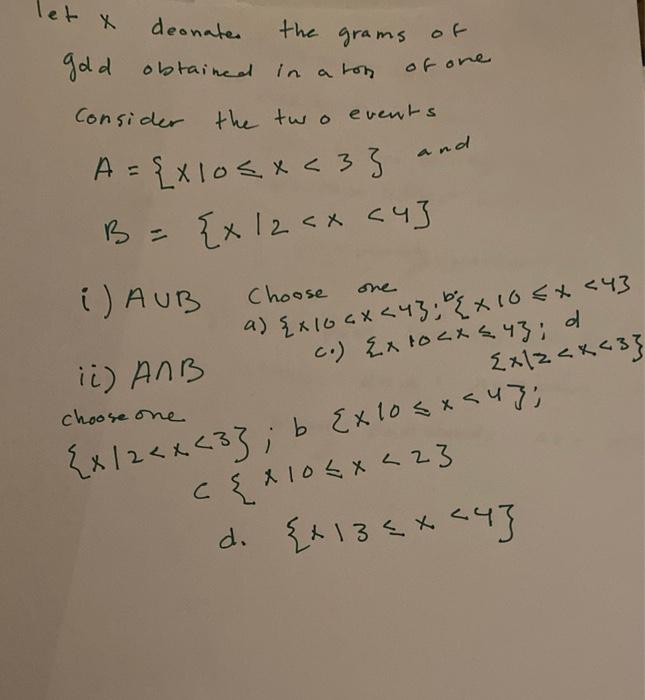 let x deonates the grams of
gold obtained in a ton of one
Consider the two events
A = {x|0 ≤ x < 3} and
B = {x|2 < x < 4}
i) A∪B Choose one
a) {x|0 < x < 4}; b; {x|0 ≤ x < 4}
c.) {x|0 < x ≤ 4}; d
{x|2 < x < 3}
ii) A∩B
choose one
{x|2 < x < 3}; b {x|0 ≤ x < 4};
c {x|0 ≤ x < 2}
d. {x|3 ≤ x < 4}